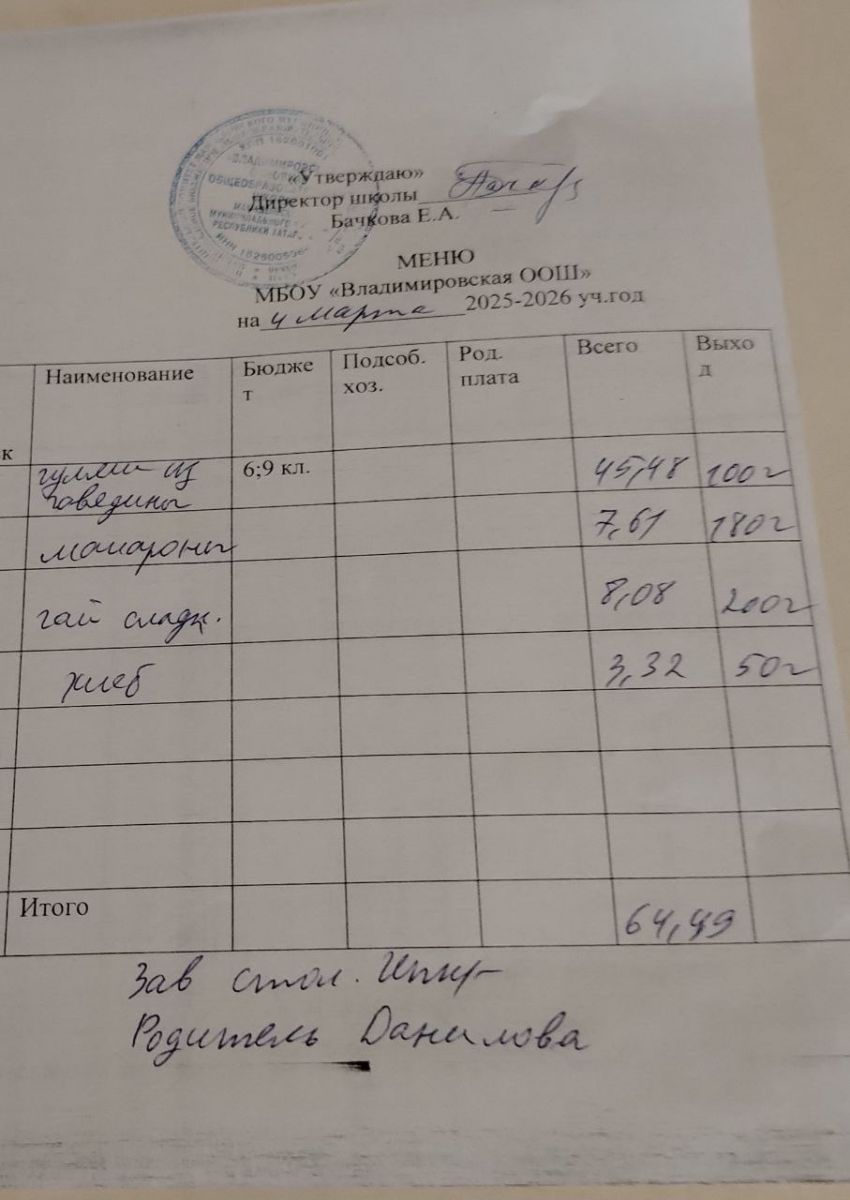 «Утверждаю»
Директор школы
Бачкова Е.А.
МЕНЮ
МБОУ «Владимировская ООШ»
на 4 марта 2025-2026 уч.год
к Наименование Бюдже Подсоб. Род. Всего Выхо
т хоз. плата д
гуляш из 6;9 кл. 45,48 100г
говядины
макароны 7,61 180г
чай сладк. 8,08 200г
хлеб 3,32 50г
Итого 64,49
Зав стол.
Родитель Данилова